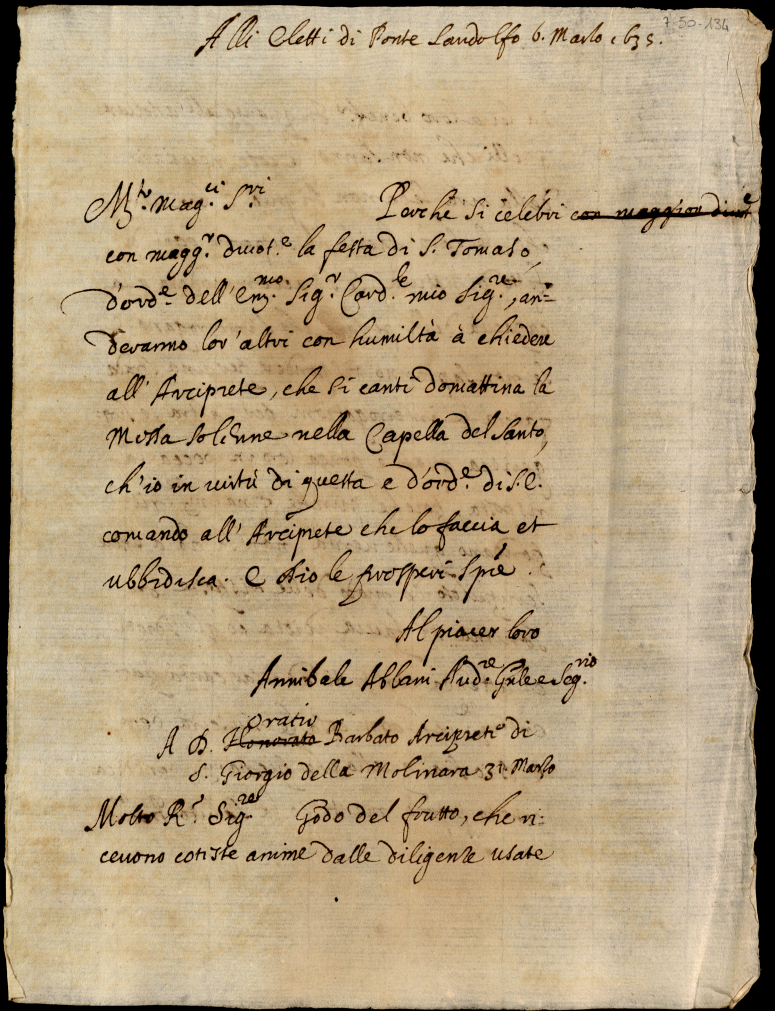 7-50-134
Alli Eletti di Ponte Landolfo 6. Marzo 1635.
M.to mag.ci S.ri Perche si celebri con maggior diuot.e
con magg.r diuot.e la festa di S. Tomaso,
d'ord.e dell'Em.mo Sig.r Card.le mio Sig.re, an=
deranno lor'altri con humiltà à chiedere
all'Arciprete, che si canti domattina la
Messa solenne nella Capella del Santo,
ch'io in uirtù di questa e d'ord.e di S.E.
comando all'Arciprete che lo faccia et
ubbidisca. E Dio le prosperi
Al piacer loro
Annibale Ablani Aud.re Gnle e Seg.rio
Oratio
A D. Honorato Barbato Arciprete di
S. Giorgio della Molinara 31. Marzo
Molto R.do Sig.re Godo del frutto, che ri=
ceuono coteste anime dalle diligenze usate